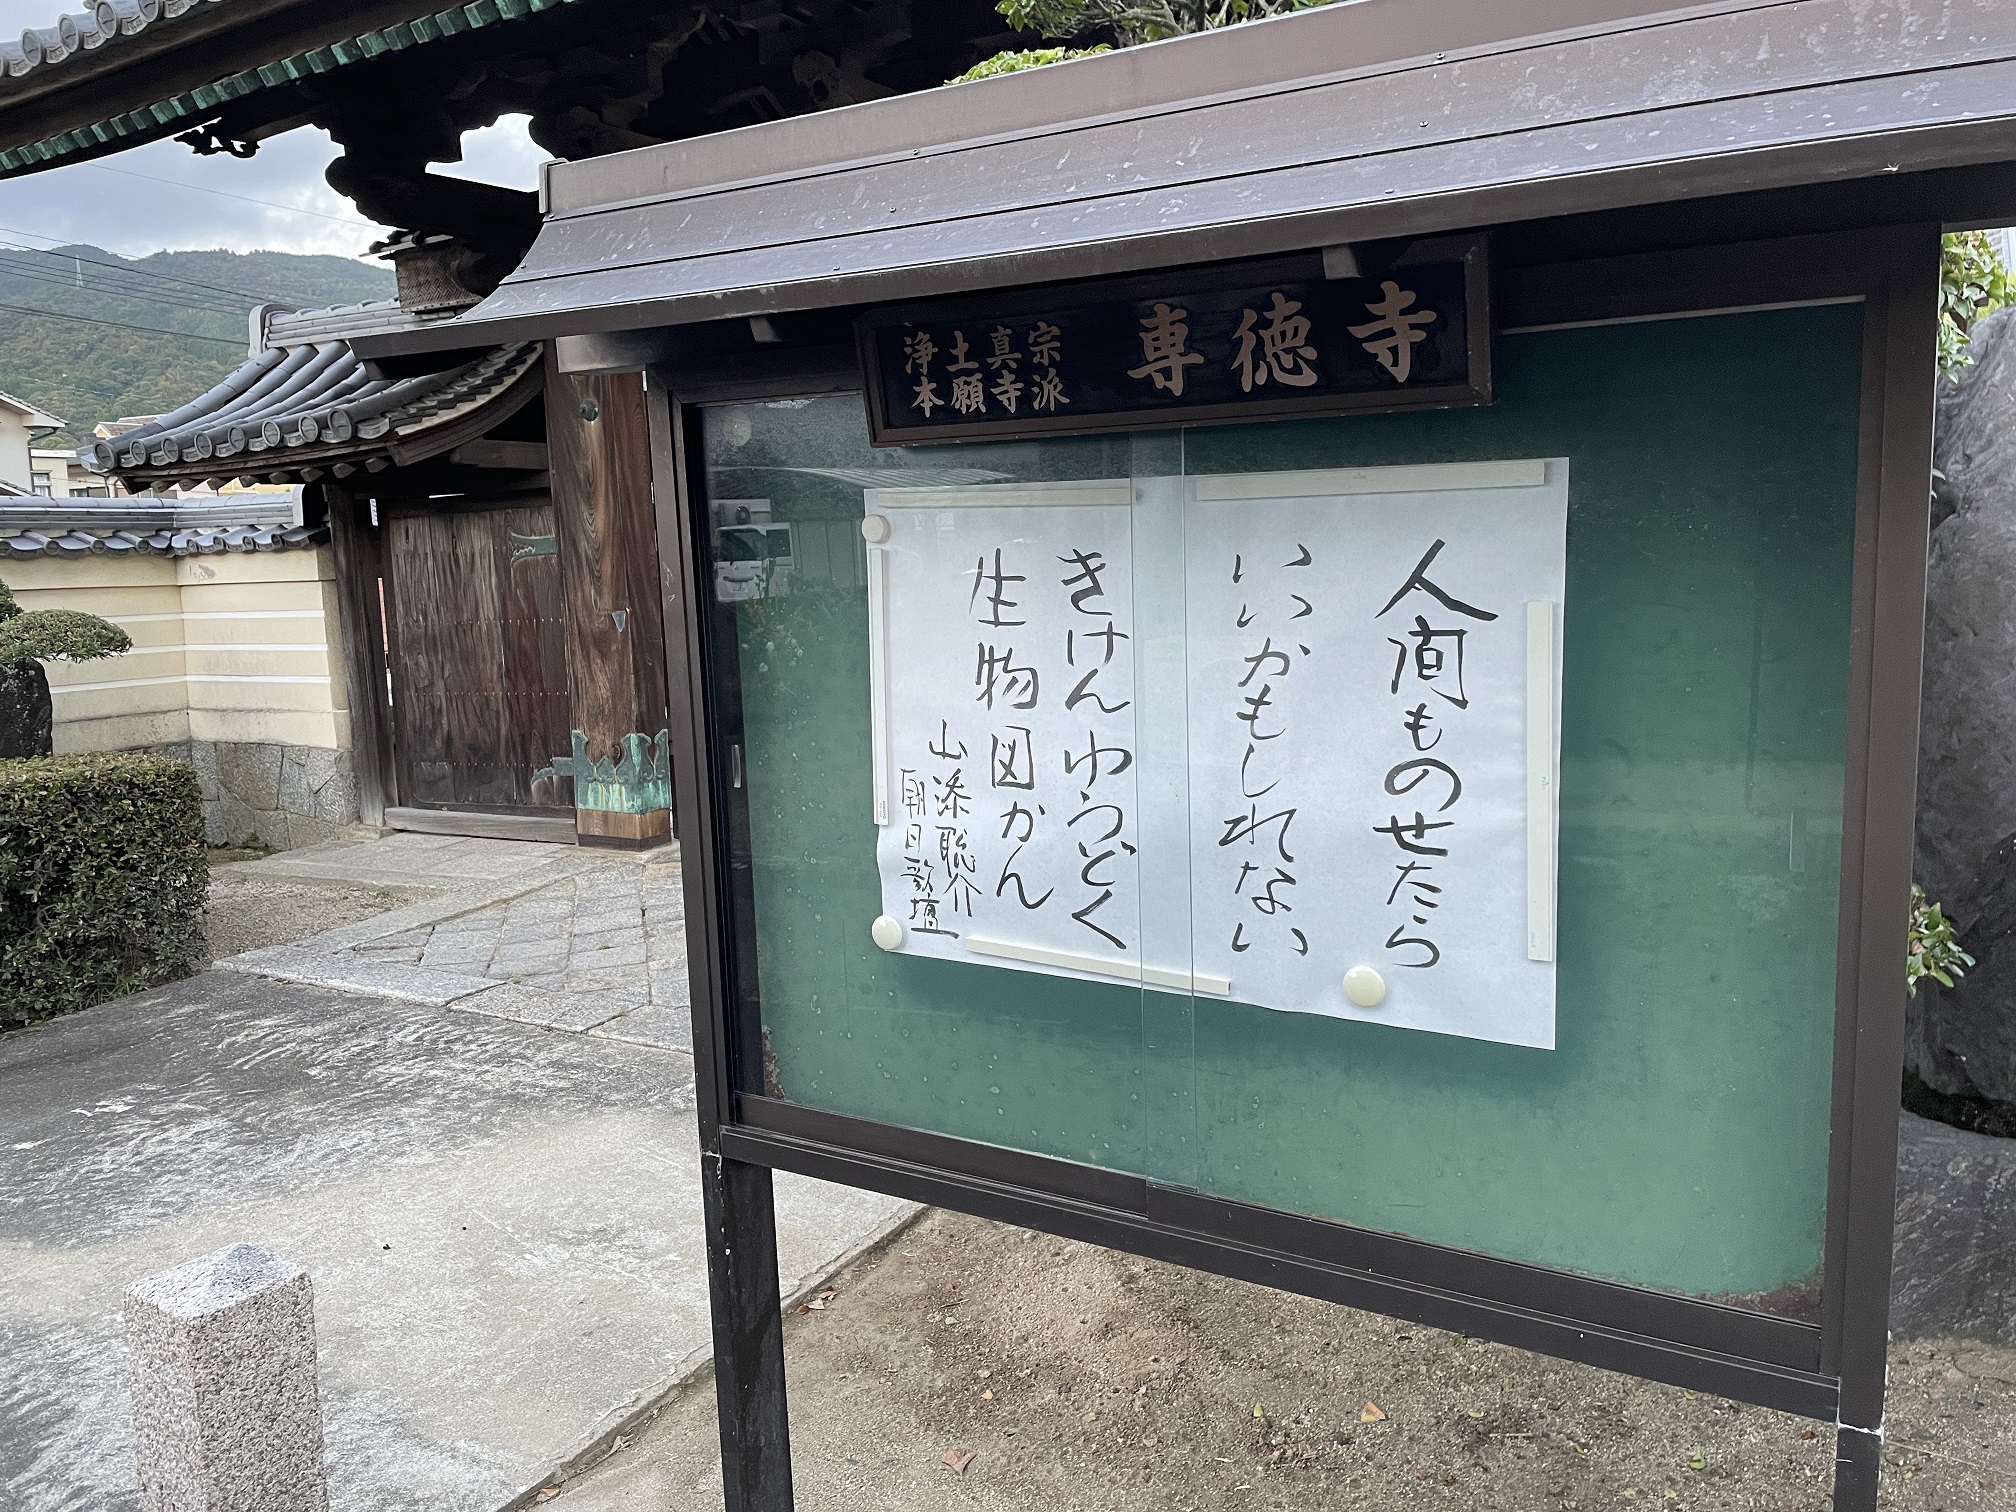 浄土真宗
本願寺派
専徳寺
人間ものせたら
いいかもしれない
きけんゆうどく
生物図かん
山添聡介
朝日歌壇